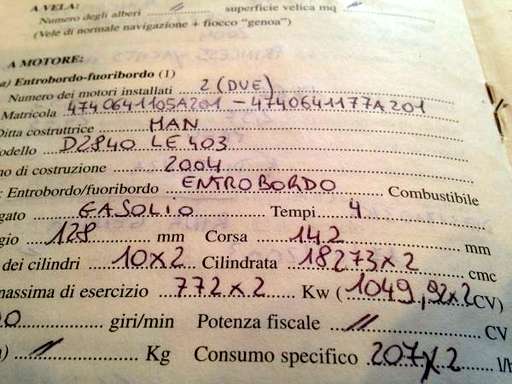 A VELA:
Numero degli alberi // superficie velica mq
(Vele di normale navigazione + fiocco "genoa")
A MOTORE:
a) Entrobordo-fuoribordo (1)
Numero dei motori installati 2 (DUE)
Matricola 4740641105A201 - 4740641177A201
Ditta costruttrice MAN
odello D2840 LE403
no di costruzione 2004
: Entrobordo/fuoribordo ENTROBORDO Combustibile
gato GASOLIO Tempi 4
gio 128 mm Corsa 142 mm
dei cilindri 10x2 Cilindrata 18273x2 cmc
massima di esercizio 772x2 Kw (1049,92x2 CV)
0 giri/min Potenza fiscale // CV
) // Kg Consumo specifico 207x2 l/h